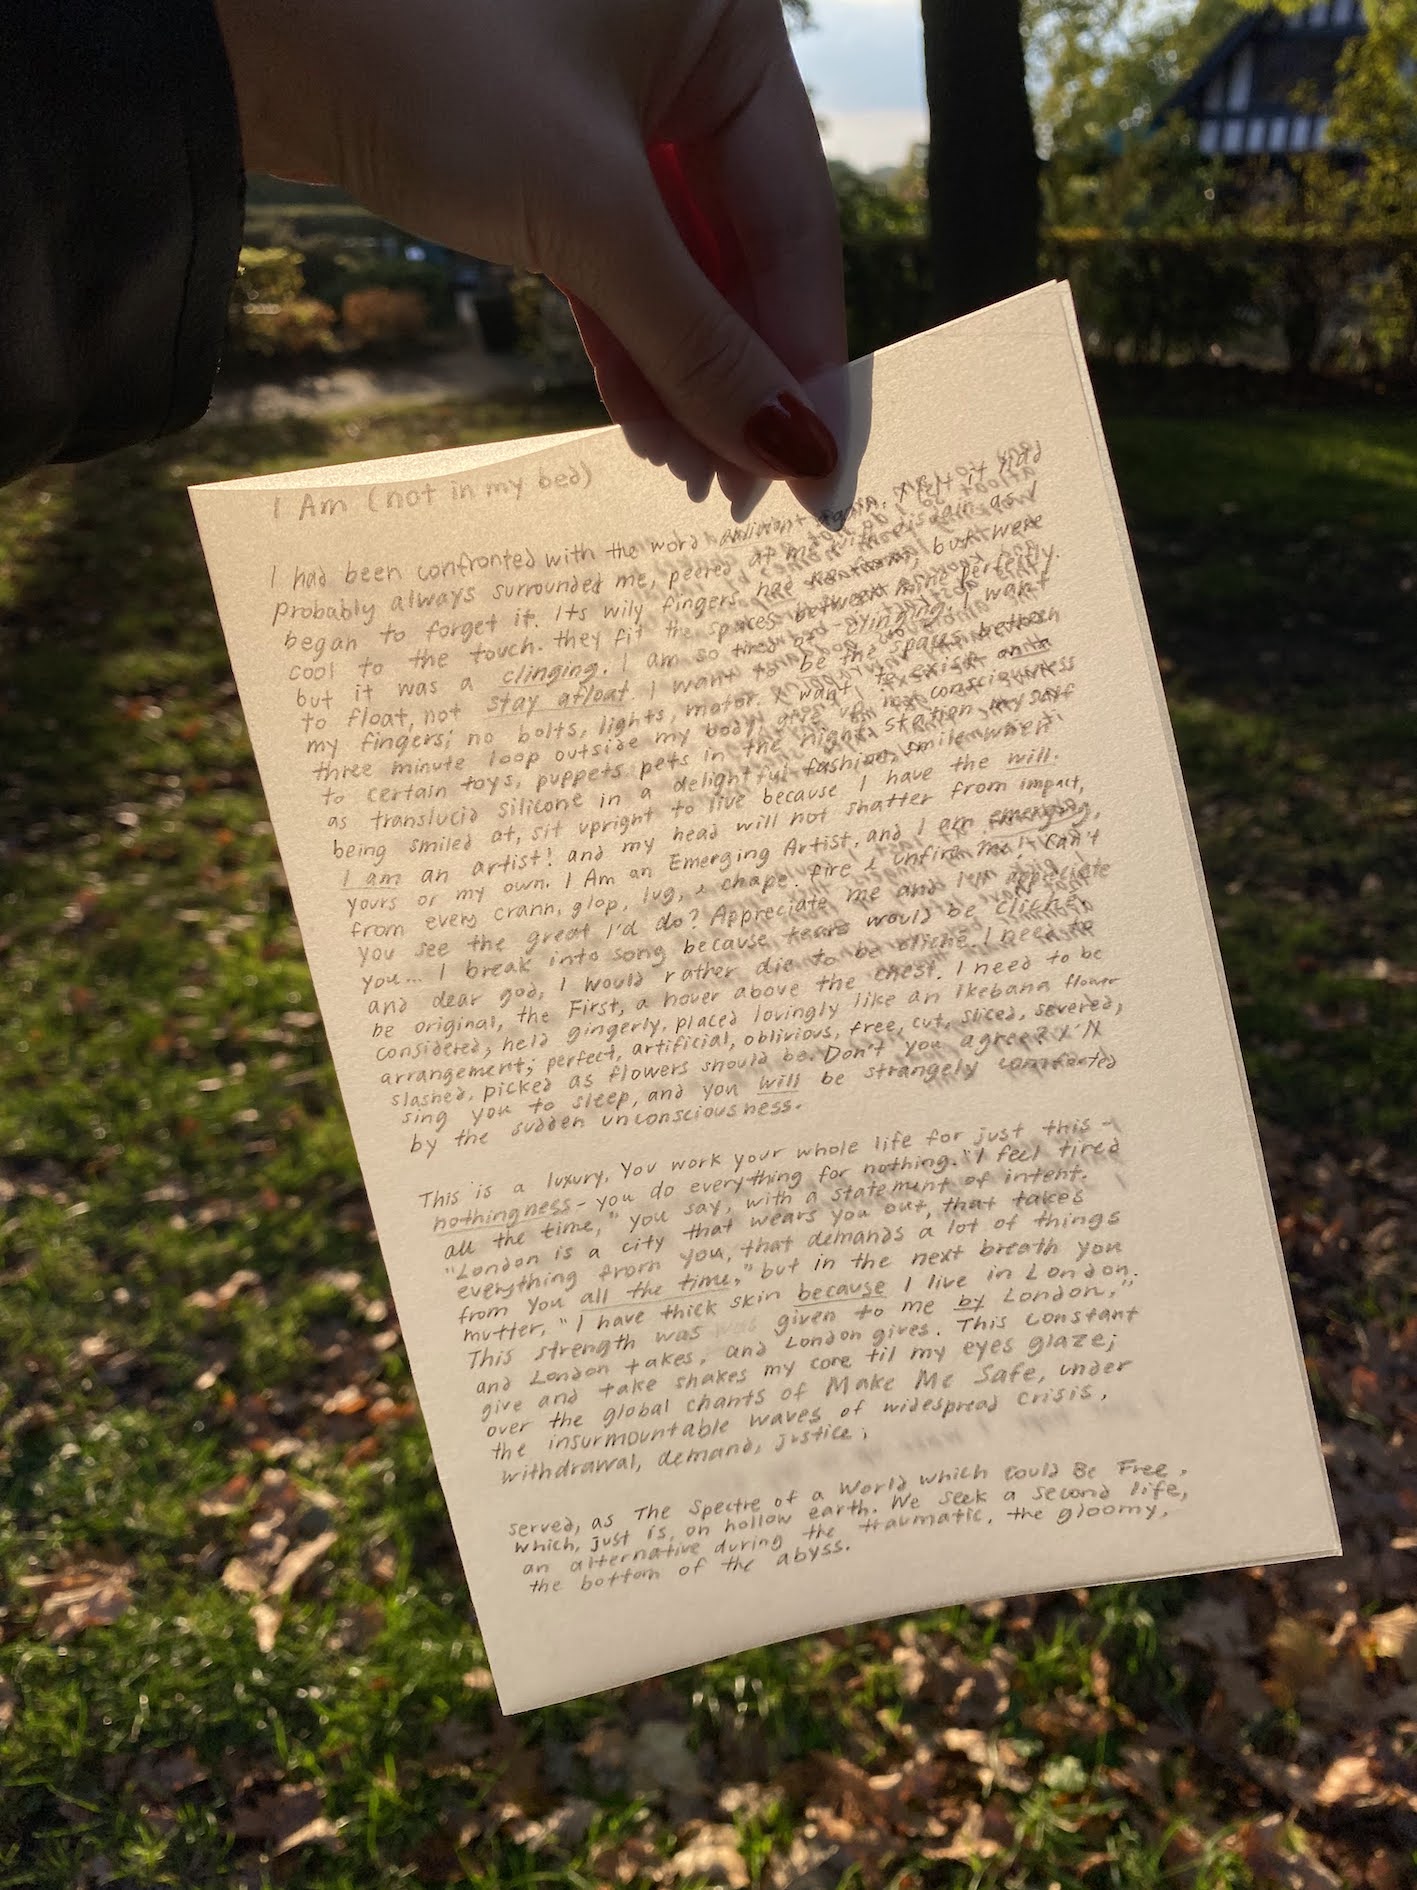 I Am (not in my bed)
I had been confronted with the word again. it had
probably always surrounded me, peered at me with disdain as I
began to forget it. Its wily fingers had no form, but were
cool to the touch. they fit the spaces between mine perfectly.
but it was a clinging. I am so tired of clinging. I want
to float, not stay afloat. I want to be the spaces between
my fingers; no bolts, lights, motor. I want to exist on a
three minute loop outside my body, give up my consciousness
to certain toys, puppets pets in the night, station myself
as translucid silicone in a delightful fashion, smile when
being smiled at, sit upright to live because I have the will.
I am an artist! and my head will not shatter from impact,
yours or my own. I Am an Emerging Artist, and I am emerging,
from every crann, glop, lug, & chape. fire & unfire me! Can't
you see the great I'd do? Appreciate me and I'll appreciate
you... I break into song because tears would be cliche,
and dear god, I would rather die to be cliche. I need to
be original, the First, a hover above the chest. I need to be
considered, held gingerly, placed lovingly like an Ikebana flower
arrangement; perfect, artificial, oblivious, free, cut, sliced, severed,
slashed, picked as flowers should be. Don't you agree? I'll
sing you to sleep, and you will be strangely comforted
by the sudden unconsciousness.
This is a luxury. You work your whole life for just this -
nothingness - you do everything for nothing. "I feel tired
all the time," you say, with a statement of intent.
"London is a city that wears you out, that takes
everything from you, that demands a lot of things
from you all the time," but in the next breath you
mutter, "I have thick skin because I live in London.
This strength was given to me by London,"
and London takes, and London gives. This constant
give and take shakes my core til my eyes glaze;
over the global chants of Make Me Safe, under
the insurmountable waves of widespread crisis,
withdrawal, demand, justice;
served, as The Spectre of a World which Could Be Free,
which, just is, on hollow earth. We seek a second life,
an alternative during the traumatic, the gloomy,
the bottom of the abyss.